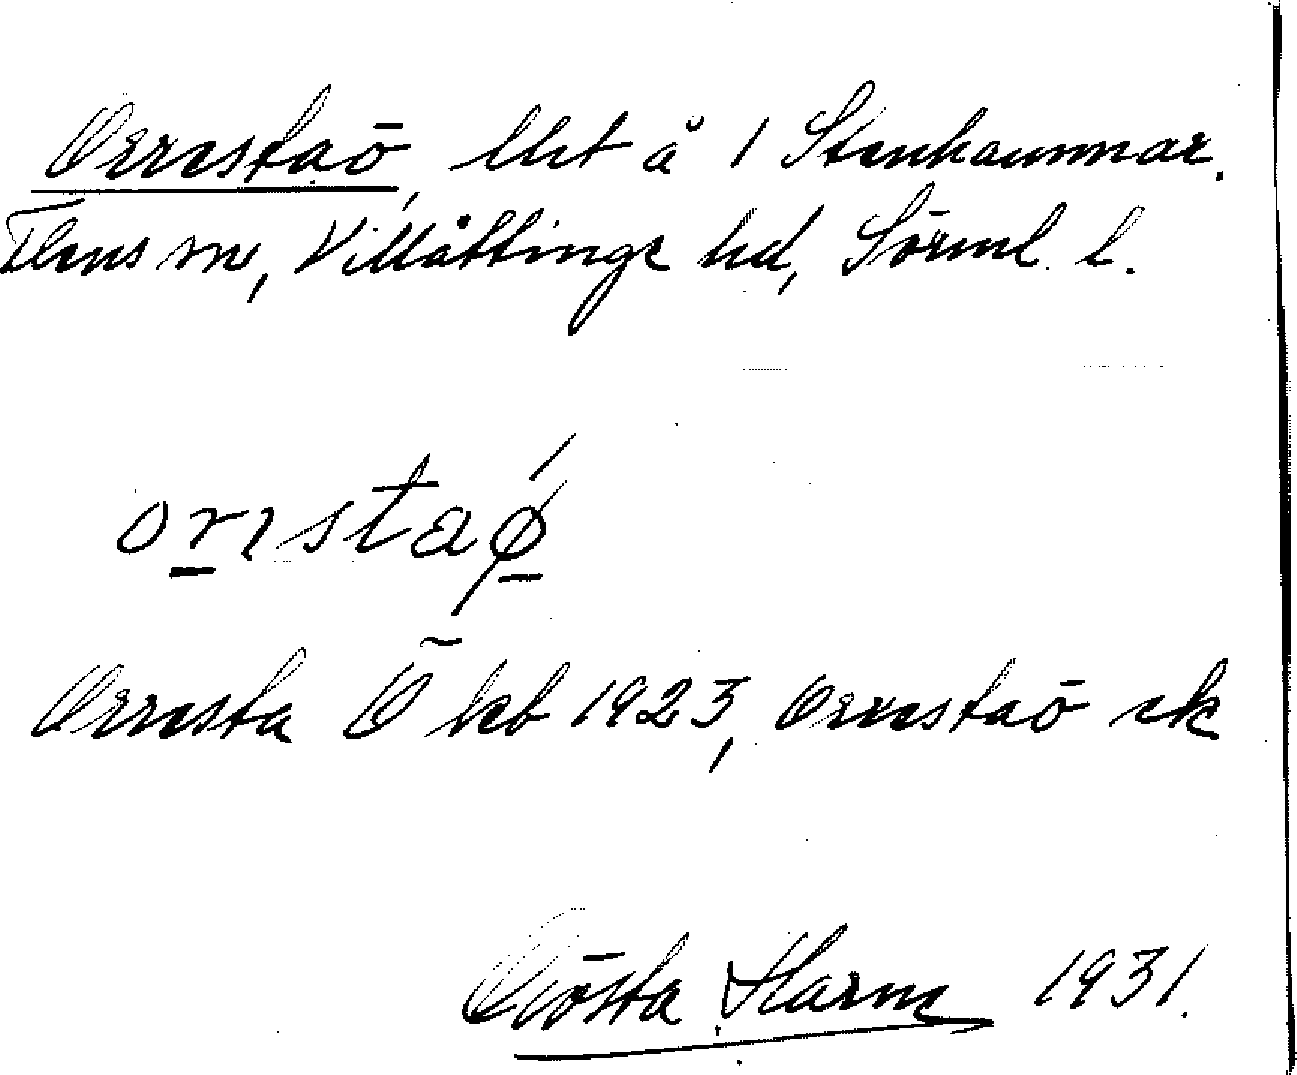 Orrestaö, lht å 1 Stenhammar.
Flens sn, Villåttinge hd, Sörml. l.
orɪstaǿ
Orresta Ö kb 1923, Orrestaö ek
Gösta Harm 1931.